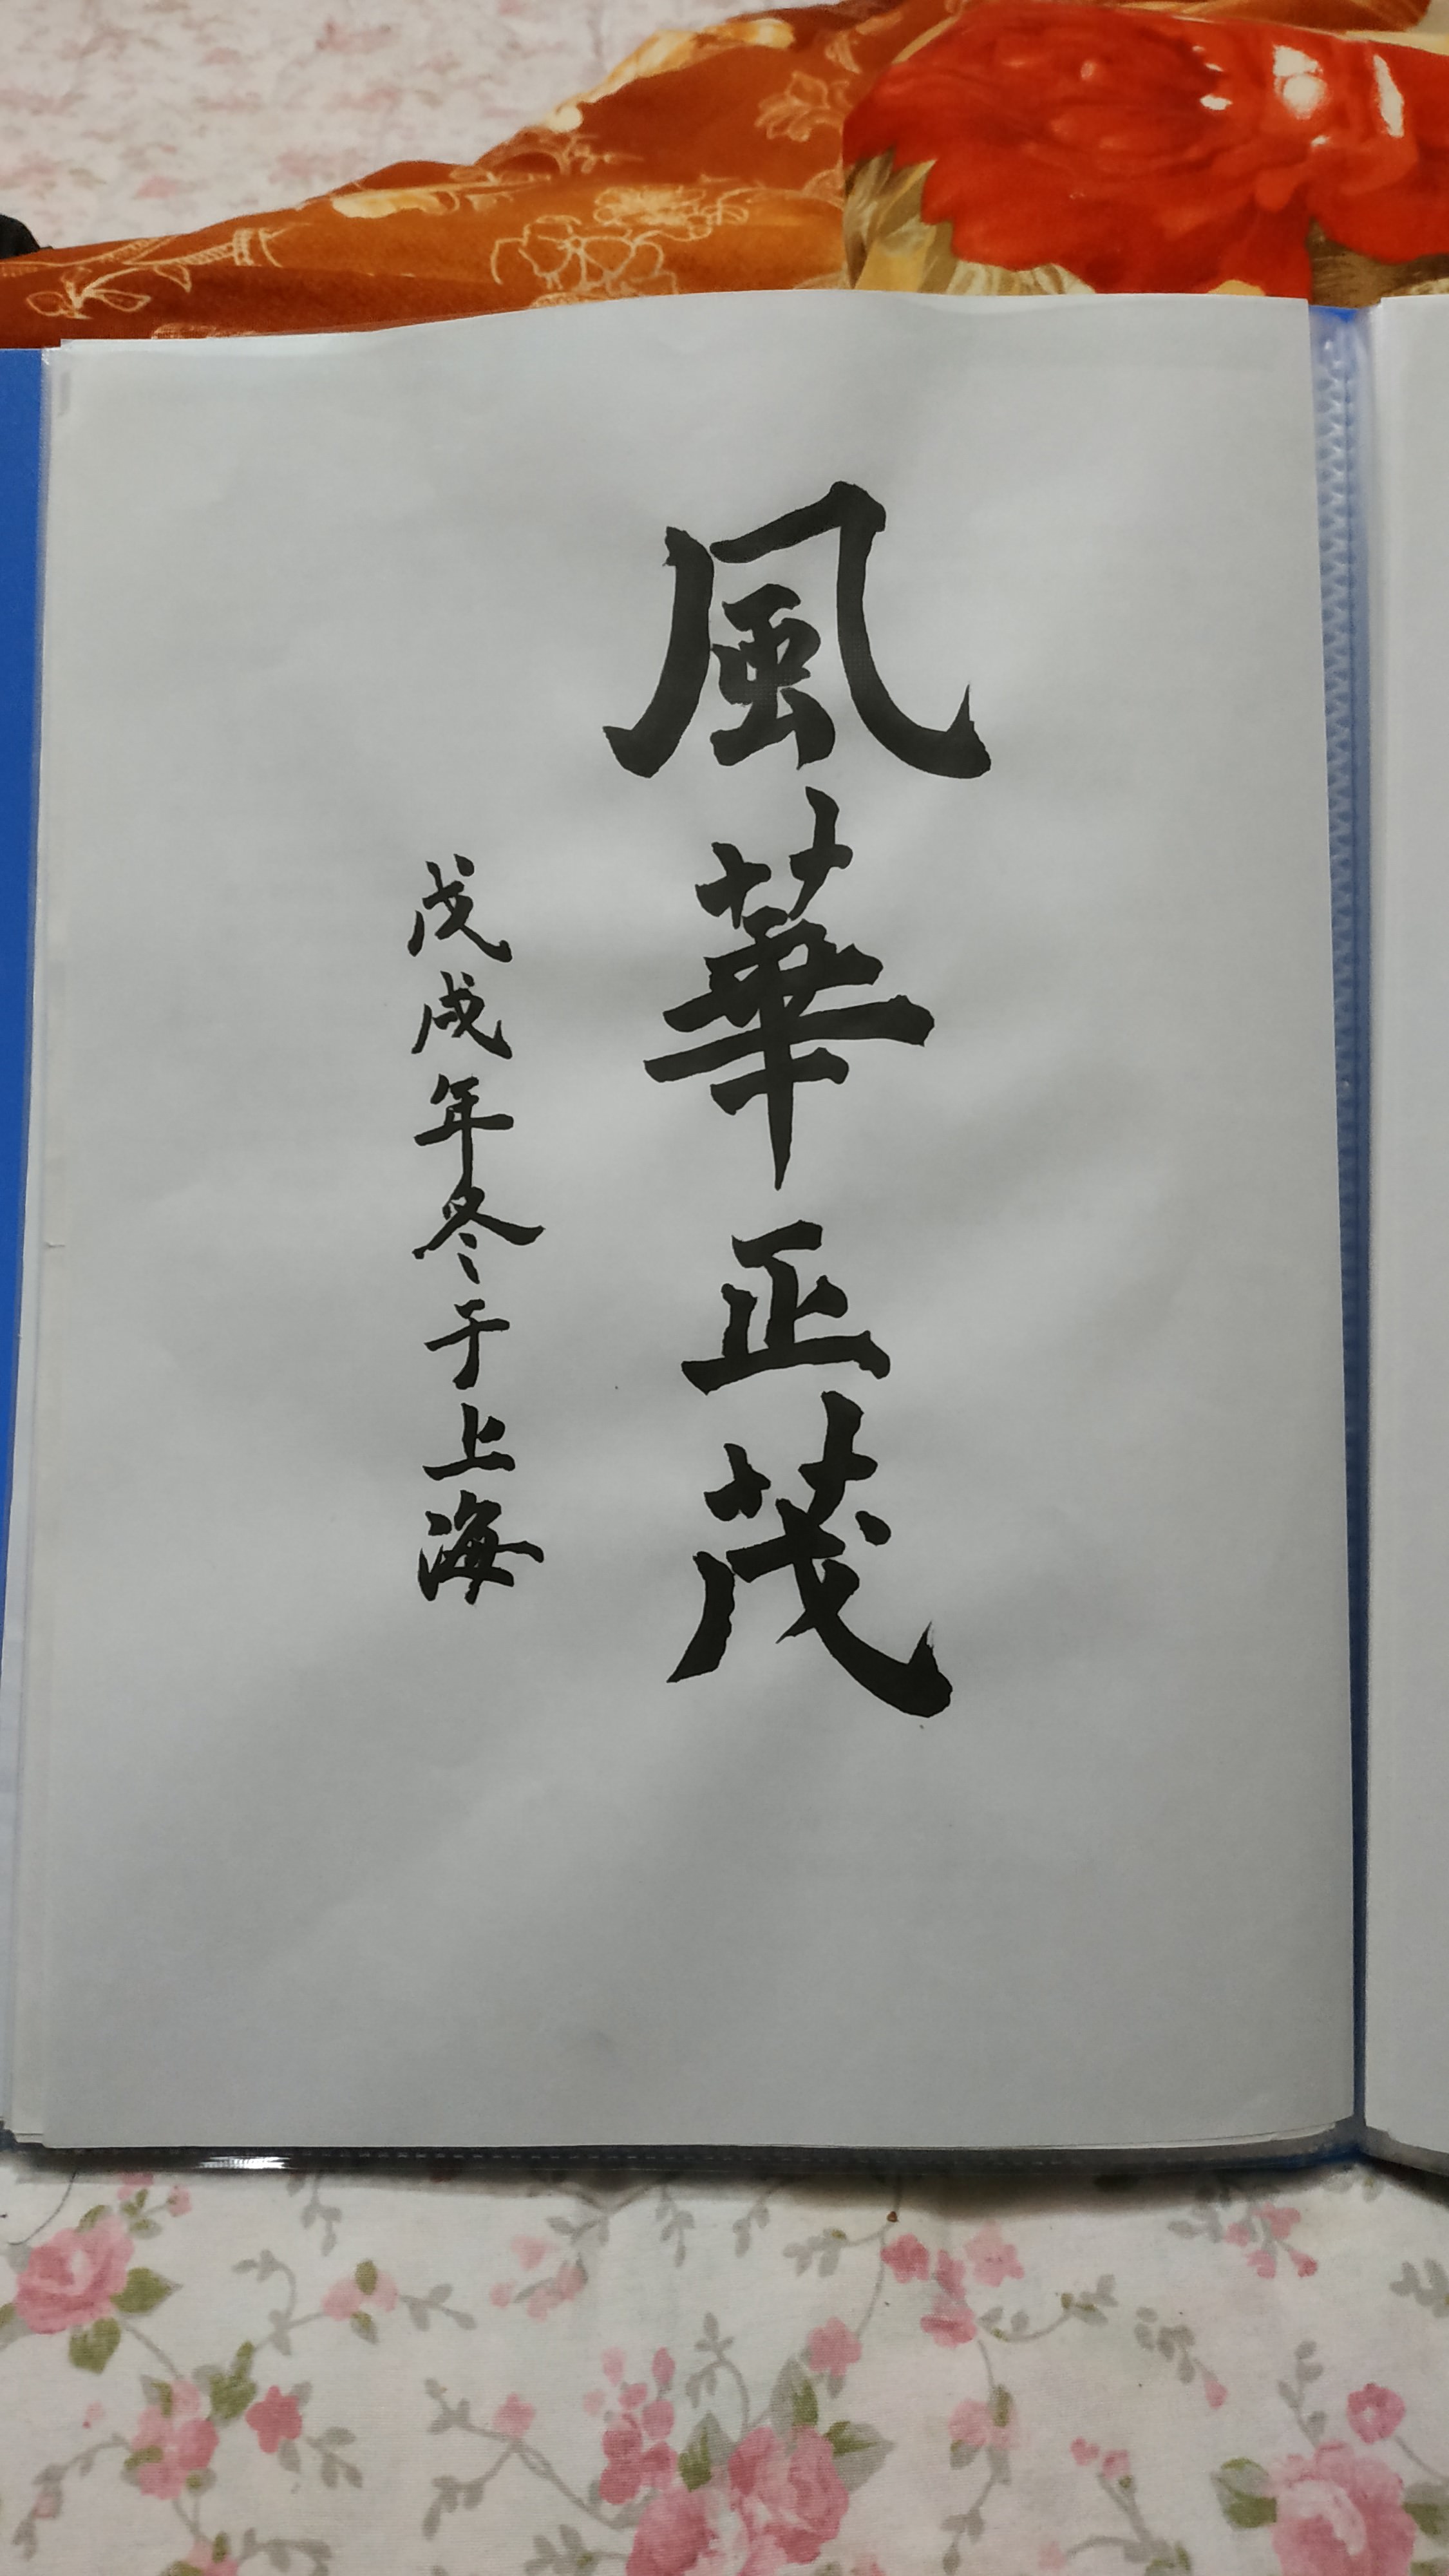 風華正茂
戊戌年冬于上海